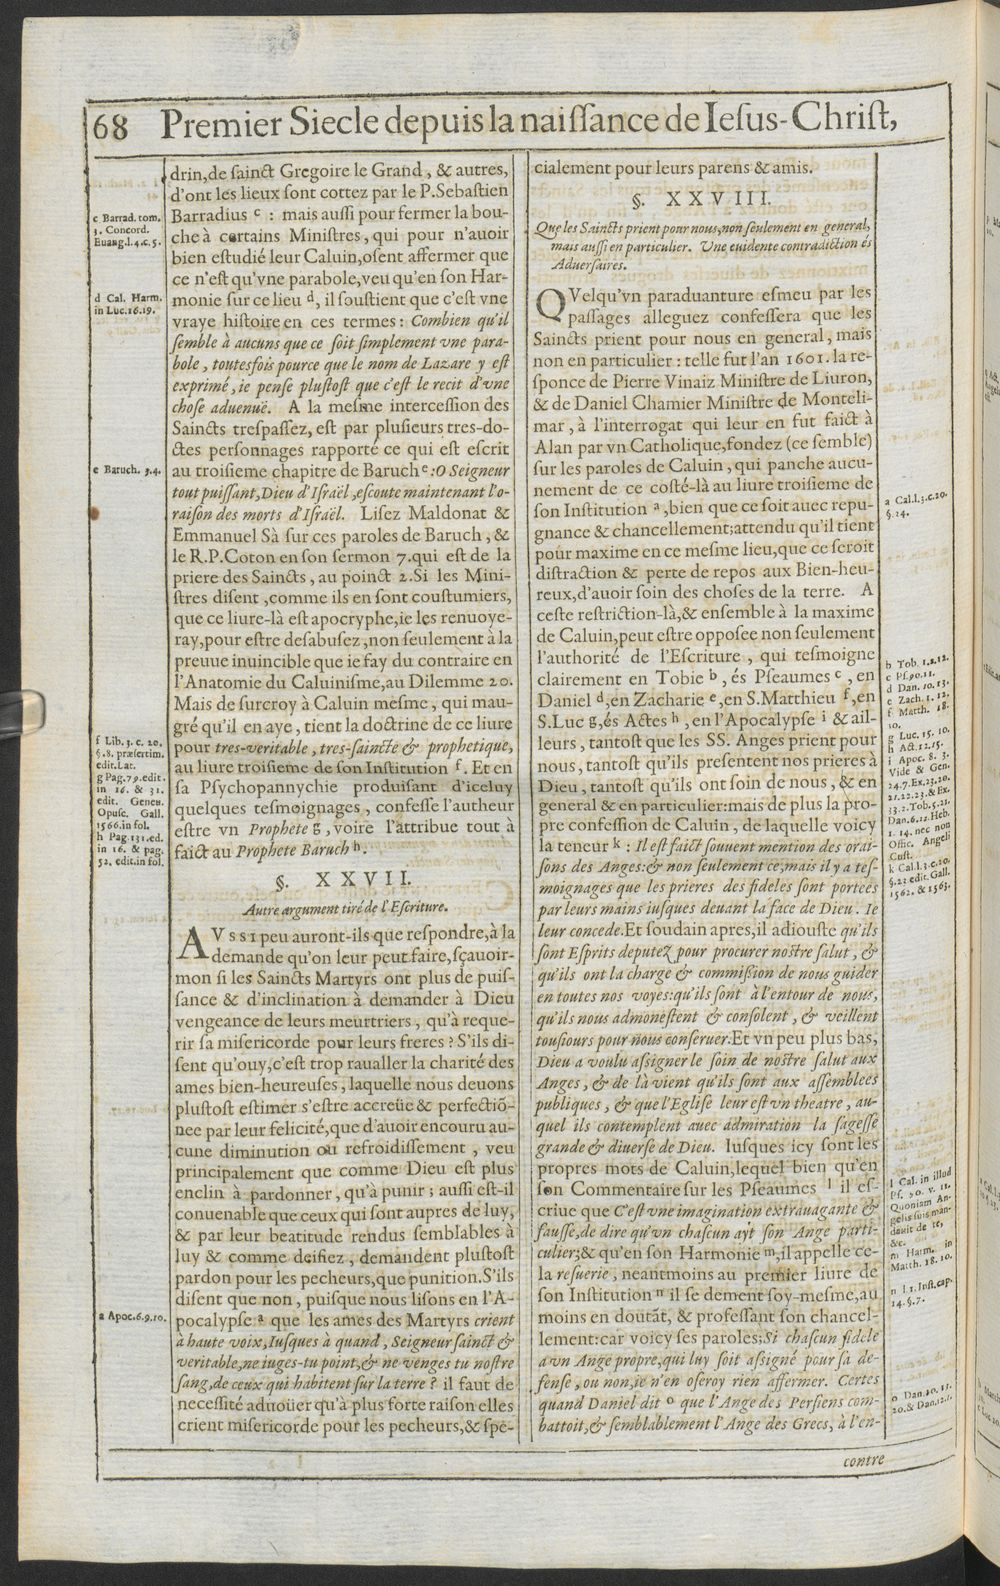 68 Premier Siecle depuis la naiſſance de Ieſus-Chriſt,
drin, de ſainct Gregoire le Grand, & autres,
d'ont les lieux ſont cottez par le P. Sebaſtien
Barradius c : mais auſſi pour fermer la bou-
che à certains Miniſtres, qui pour n'auoir
bien eſtudié leur Caluin, oſent affermer que
ce n'eſt qu'vne parabole, veu qu'en ſon Har-
monie ſur ce lieu d, il ſouſtient que c'eſt vne
vraye hiſtoire en ces termes : Combien qu'il
ſemble à aucuns que ce ſoit ſimplement vne para-
bole, toutesfois pource que le nom de Lazare y eſt
exprimé, ie penſe pluſtoſt que c'eſt le recit d'vne
choſe aduenuë. A la meſme intercesſion des
Saincts treſpaſſez, eſt par pluſieurs tres-do-
ctes perſonnages rapporté ce qui eſt eſcrit
au troiſieme chapitre de Baruch e : O Seigneur
tout puiſſant, Dieu d'Iſraël, eſcoute maintenant l'o-
raiſon des morts d'Iſraël. Liſez Maldonat &
Emmanuel Sà ſur ces paroles de Baruch, &
le R. P. Coton en ſon ſermon 7. qui eſt de la
priere des Saincts, au poinct 2. Si les Mini-
ſtres diſent, comme ils en ſont couſtumiers,
que ce liure-là eſt apocryphe, ie les renuoye-
ray, pour eſtre deſabuſez, non ſeulement à la
preuue inuincible que ie fay du contraire en
l'Anatomie du Caluiniſme, au Dilemme 20.
Mais de ſurcroy à Caluin meſme, qui mau-
gré qu'il en aye, tient la doctrine de ce liure
pour tres-veritable, tres-ſaincte & prophetique,
au liure troiſieme de ſon Inſtitution f. Et en
ſa Pſychopannychie produiſant d'iceluy
quelques teſmoignages, confeſſe l'autheur
eſtre vn Prophete g, voire l'attribue tout à
faict au Prophete Baruch h.
§. XXVII.
Autre argument tiré de l'Eſcriture.
AVSSI peu auront-ils que reſpondre, à la
demande qu'on leur peut faire, ſçauoir-
mon ſi les Saincts Martyrs ont plus de puiſ-
ſance & d'inclination à demander à Dieu
vengeance de leurs meurtriers, qu'à reque-
rir ſa miſericorde pour leurs freres ? S'ils di-
ſent qu'ouy, c'eſt trop raualler la charité des
ames bien-heureuſes, laquelle nous deuons
pluſtoſt eſtimer s'eſtre accreüe & perfectiõ-
nee par leur felicité, que d'auoir encouru au-
cune diminution ou refroidiſſement, veu
principalement que comme Dieu eſt plus
enclin à pardonner, qu'à punir ; auſſi eſt-il
conuenable que ceux qui ſont aupres de luy,
& par leur beatitude rendus ſemblables à
luy & comme deifiez, demandent pluſtoſt
pardon pour les pecheurs, que punition. S'ils
diſent que non, puiſque nous liſons en l'A-
pocalypſe a que les ames des Martyrs crient
à haute voix, Iuſques à quand, Seigneur ſainct &
veritable, ne iuges-tu point, & ne venges tu noſtre
ſang, de ceux qui habitent ſur la terre ? il faut de
neceſſité aduoüer qu'à plus forte raiſon elles
crient miſericorde pour les pecheurs, & ſpe-
c Barrad. tom.
3. Concord.
Euang. l. 4. c. 5.
d Cal. Harm.
in Luc. 16. 19.
e Baruch. 3. 4.
f Lib. 3. c. 20.
§. 8. præſertim.
edit. Lat.
g Pag. 79. edit.
in 16. & 31.
edit. Geneu.
Opuſc. Gall.
1566. in fol.
h Pag. 131. ed.
in 16. & pag.
52. edit. in fol.
a Apoc. 6. 9. 10.
cialement pour leurs parens & amis.
§. XXVIII.
Que les Saincts prient pour nous, non ſeulement en general,
mais auſſi en particulier. Vne euidente contradiction és
Aduerſaires.
QVelqu'vn paraduanture eſmeu par les
paſſages alleguez confeſſera que les
Saincts prient pour nous en general, mais
non en particulier : telle fut l'an 1601. la re-
ſponce de Pierre Vinaiz Miniſtre de Liuron,
& de Daniel Chamier Miniſtre de Monteli-
mar, à l'interrogat qui leur en fut faict à
Alan par vn Catholique, fondez (ce ſemble)
ſur les paroles de Caluin, qui panche aucu-
nement de ce coſté-là au liure troiſieme de
ſon Inſtitution a, bien que ce ſoit auec repu-
gnance & chancellement; attendu qu'il tient
pour maxime en ce meſme lieu, que ce ſeroit
diſtraction & perte de repos aux Bien-heu-
reux, d'auoir ſoin des choſes de la terre. A
ceſte reſtriction-là, & enſemble à la maxime
de Caluin, peut eſtre oppoſee non ſeulement
l'authorité de l'Eſcriture, qui teſmoigne
clairement en Tobie b, és Pſeaumes c, en
Daniel d, en Zacharie e, en S. Matthieu f, en
S. Luc g, és Actes h, en l'Apocalypſe i & ail-
leurs, tantoſt que les SS. Anges prient pour
nous, tantoſt qu'ils preſentent nos prieres à
Dieu, tantoſt qu'ils ont ſoin de nous, & en
general & en particulier: mais de plus la pro-
pre confeſſion de Caluin, de laquelle voicy
la teneur k : Il eſt faict ſouuent mention des orai-
ſons des Anges: & non ſeulement ce, mais il y a teſ-
moignages que les prieres des fideles ſont portees
par leurs mains iuſques deuant la face de Dieu. Ie
leur concede. Et ſoudain apres, il adiouſte qu'ils
ſont Eſprits deputez pour procurer noſtre ſalut, &
qu'ils ont la charge & commiſſion de nous guider
en toutes nos voyes: qu'ils ſont à l'entour de nous,
qu'ils nous admoneſtent & conſolent, & veillent
touſiours pour nous conſeruer. Et vn peu plus bas,
Dieu a voulu aſſigner le ſoin de noſtre ſalut aux
Anges, & de là vient qu'ils ſont aux aſſemblees
publiques, & que l'Egliſe leur eſt vn theatre, au-
quel ils contemplent auec admiration la ſageſſe
grande & diuerſe de Dieu. Iuſques icy ſont les
propres mots de Caluin, lequel bien qu'en
ſon Commentaire ſur les Pſeaumes l il eſ-
criue que C'eſt vne imagination extrauagante &
fauſſe, de dire qu'vn chaſcun ayt ſon Ange parti-
culier; & qu'en ſon Harmonie m, il appelle ce-
la reſuerie, neantmoins au premier liure de
ſon Inſtitution n il ſe dement ſoy-meſme, au
moins en doutãt, & profeſſant ſon chancel-
lement: car voicy ſes paroles; Si chaſcun fidele
a vn Ange propre, qui luy ſoit aſſigné pour ſa de-
fenſe, ou non, ie n'en oſeroy rien affermer. Certes
quand Daniel dit o que l'Ange des Perſiens com-
battoit, & ſemblablement l'Ange des Grecs, à l'en-
contre
a Cal. l. 3. c. 20.
§. 24.
b Tob. 12. 12.
c Pſ. 90. 11.
d Dan. 10. 13.
e Zach. 1. 12.
f Matth. 18.
10.
g Luc. 15. 10.
h Act. 12. 15.
i Apoc. 8. 3.
Vide & Gen.
24. 7. Ex. 23. 20.
21. 22. 23. & Ex.
33. 2. Tob. 5. 21.
Dan. 6. 22. Heb.
1. 14. nec non
Offic. Angeli
Cuſt.
k Cal. l. 3. c. 20.
§. 23. edit. Gall.
1562. & 1563.
l Cal. in illud
Pſ. 90. v. 11.
Quoniam An-
gelis ſuis man-
dauit de te,
&c.
m Harm. in
Matth. 18. 10.
n l. 1. Inſt. cap.
14. §. 7.